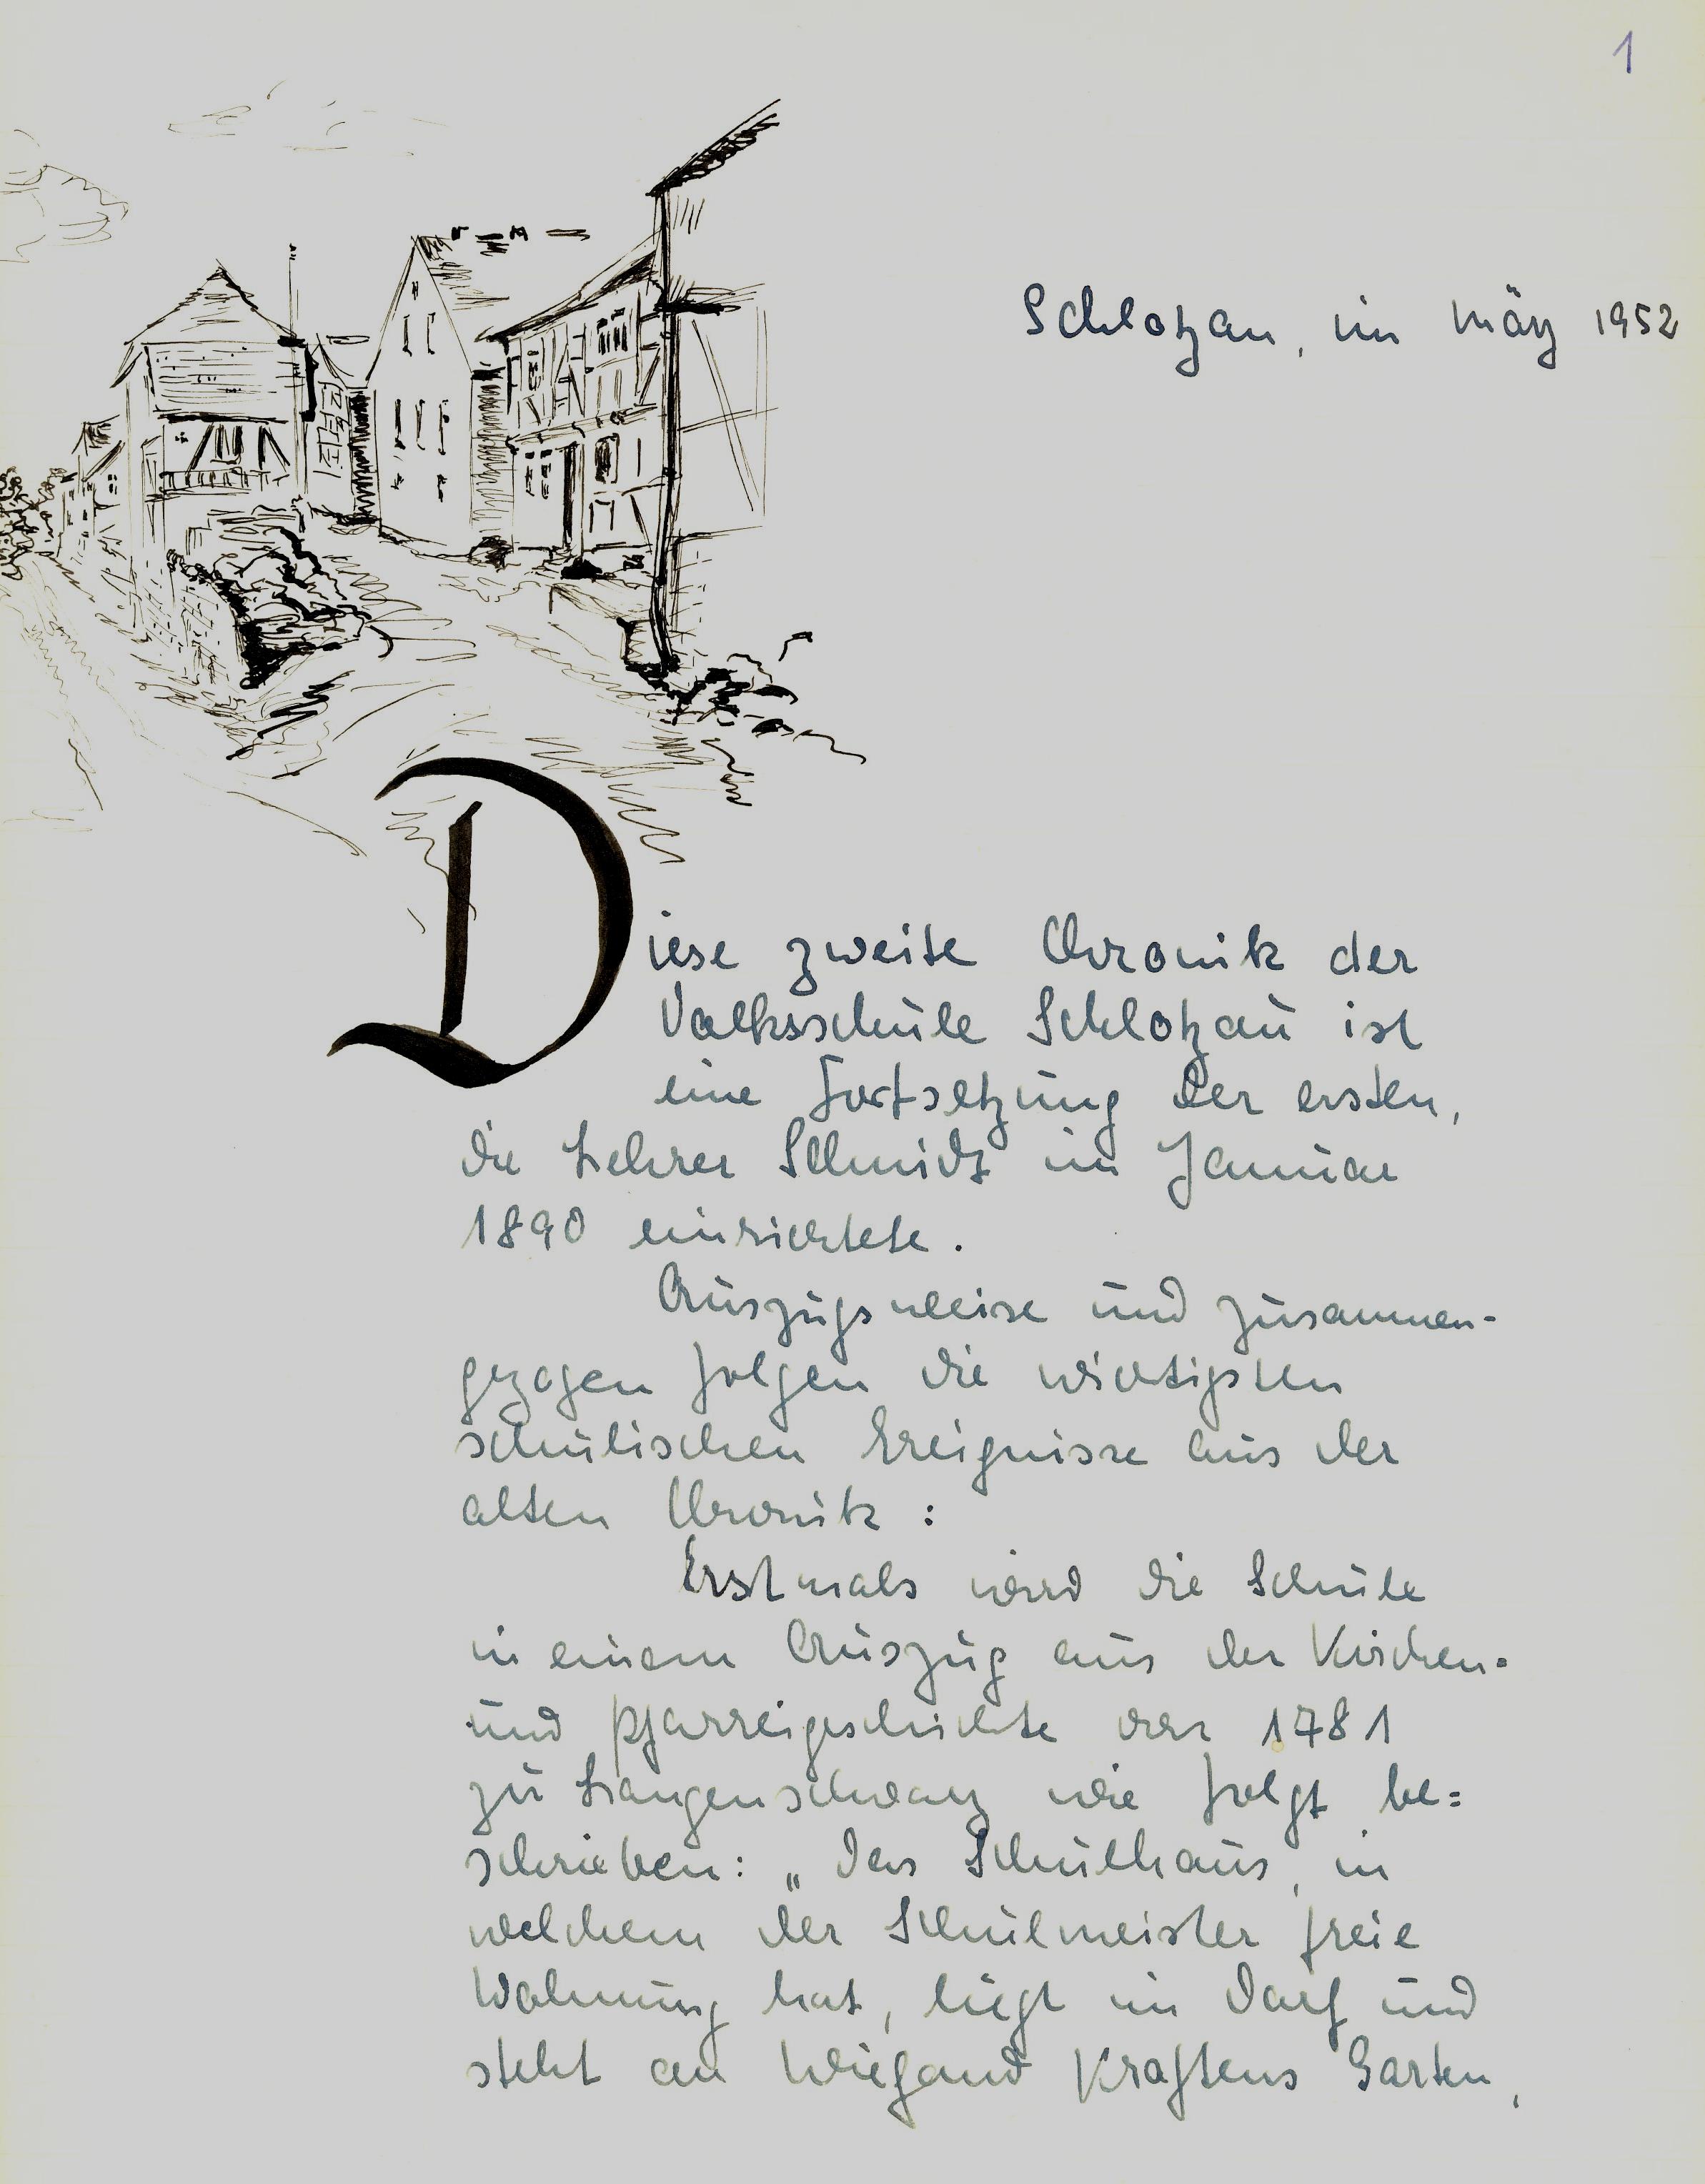 1
Schlotzau, im März 1952
Diese zweite Chronik der
Volksschule Schlotzau ist
eine Fortsetzung der ersten,
die Lehrer Schmidt im Januar
1890 einrichtete.
Auszugsweise und zusammen-
gezogen folgen die wichtigsten
schulischen Ereignisse aus der
alten Chronik:
Erstmals wird die Schule
in einem Auszug aus der Kirchen-
und Pfarreigeschichte der 1781
zu Langenschwarz wie folgt be=
schrieben: „Das Schulhaus, in
welchem der Schulmeister freie
Wohnung hat, liegt im Dorf und
steht an Wiegand Kraftens Garten,